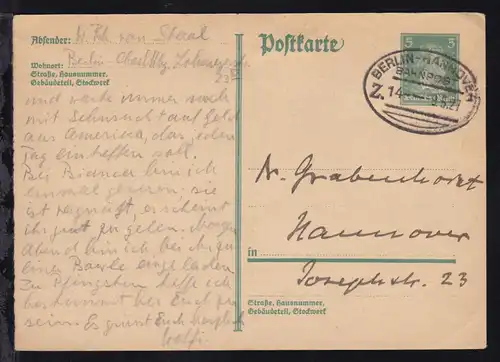 Absender: W. Frh. von Staal
Wohnort: Berlin-Charlbg.
Straße, Hausnummer,
Gebäudeteil, Stockwerk
23 III
und warte immer noch
mit Sehnsucht auf Geld
aus America, das jeden
Tag eintreffen soll.
Bei Bianca bin ich
einmal gewesen; sie
ist vergnügt, es scheint
ihr gut zu gehen. Morgen
Abend bin ich bei
einer Bowle eingeladen.
Zu Pfingsten hoffe ich
bestimmt bei Euch zu
sein. Es grüsst Euch herzlich
Wolfi
Postkarte
5
BERLIN-HANNOVER
BAHNPOST
Z. 14
Dr. Grabenhorst
Hannover
in
Josephstr. 23
Straße, Hausnummer,
Gebäudeteil, Stockwerk